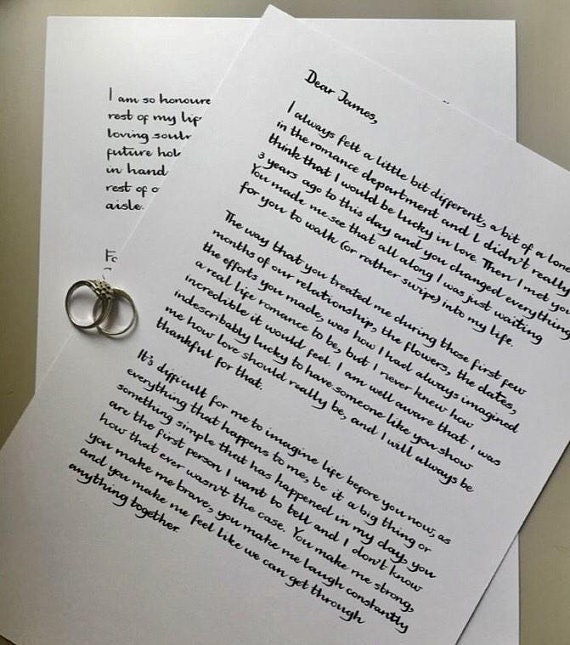 I am so honoure
rest of my lif
loving soul
future hol
in hand
rest of o
aisle.
Fo
Dear James,
I always felt a little bit different, a bit of a lone
in the romance department and I didn't really
think that I would be lucky in love. Then I met you
3 years ago to this day and you changed everything
You made me see that all along I was just waiting
for you to walk (or rather swipe) into my life.
The way that you treated me during those first few
months of our relationship, the flowers, the dates,
the efforts you made, was how I had always imagined
a real life romance to be, but I never knew how
incredible it would feel. I am well aware that I was
indescribably lucky to have someone like you show
me how love should really be, and I will always be
thankful for that.
It's difficult for me to imagine life before you now, as
everything that happens to me, be it a big thing or
something simple that has happened in my day, you
are the first person I want to tell and I don't know
how that ever wasn't the case. You make me strong,
you make me brave, you make me laugh constantly
and you make me feel like we can get through
anything together.